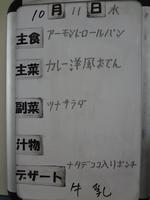 10月11日 水
主食 アーモンドロールパン
主菜 カレー洋風おでん
副菜 ツナサラダ
汁物
デザート ナタデココ入りポンチ
牛乳